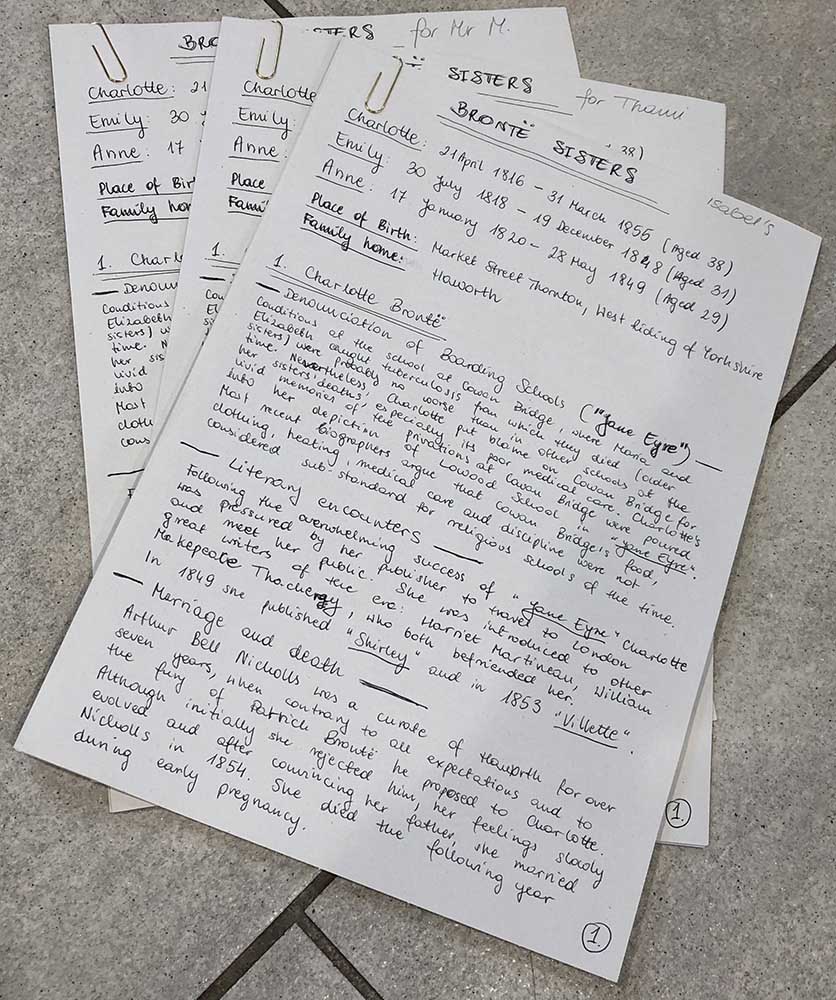 BRO
Charlotte: 21
Emily: 30 J
Anne: 17
Place of Birt
Family hom
1. Charl
— Denoun
Conditions
Elizabeth
sisters) w
time. N
her sis
vivid
into
Most
cloth
cons
STERS – for Mr M.
Charlotte:
Emily:
Anne:
Place
Family
1.
SISTERS for Thami
38)
1.
Isabel's
BRONTË SISTERS
Charlotte: 21 April 1816 – 31 March 1855 (Aged 38)
Emily: 30 July 1818 – 19 December 1848 (Aged 31)
Anne: 17 January 1820 – 28 May 1849 (Aged 29)
Place of Birth: Market Street Thornton, West Riding of Yorkshire
Family home: Haworth
1. Charlotte Brontë
— Denounciation of Boarding Schools ("Jane Eyre") —
Conditions at the school at Cowan Bridge, where Maria and
Elizabeth caught tuberculosis from which they died (older
sisters) were probably no worse than in other schools at the
time. Nevertheless Charlotte put blame on Cowan Bridge for
her sisters' deaths, especially its poor medical care. Charlotte's
vivid memories of the privations at Cowan Bridge were poured
into her depiction of Lowood School in "Jane Eyre".
Most recent biographers argue that Cowan Bridge's food,
clothing, heating, medical care and discipline were not
considered sub-standard for religious schools of the time.
— Literary encounters —
Following the overwhelming success of "Jane Eyre" Charlotte
was pressured by her publisher to travel to London
and meet her public. She was introduced to other
great writers of the era: Harriet Martineau, William
Makepeace Thackeray, who both befriended her.
In 1849 she published "Shirley" and in 1853 "Villette".
— Marriage and death —
Arthur Bell Nicholls was a curate of Haworth for over
seven years, when contrary to all expectations and to
the fury of Patrick Brontë he proposed to Charlotte.
Although initially she rejected him, her feelings slowly
evolved and after convincing her father, she married
Nicholls in 1854. She died the following year
during early pregnancy.
1.